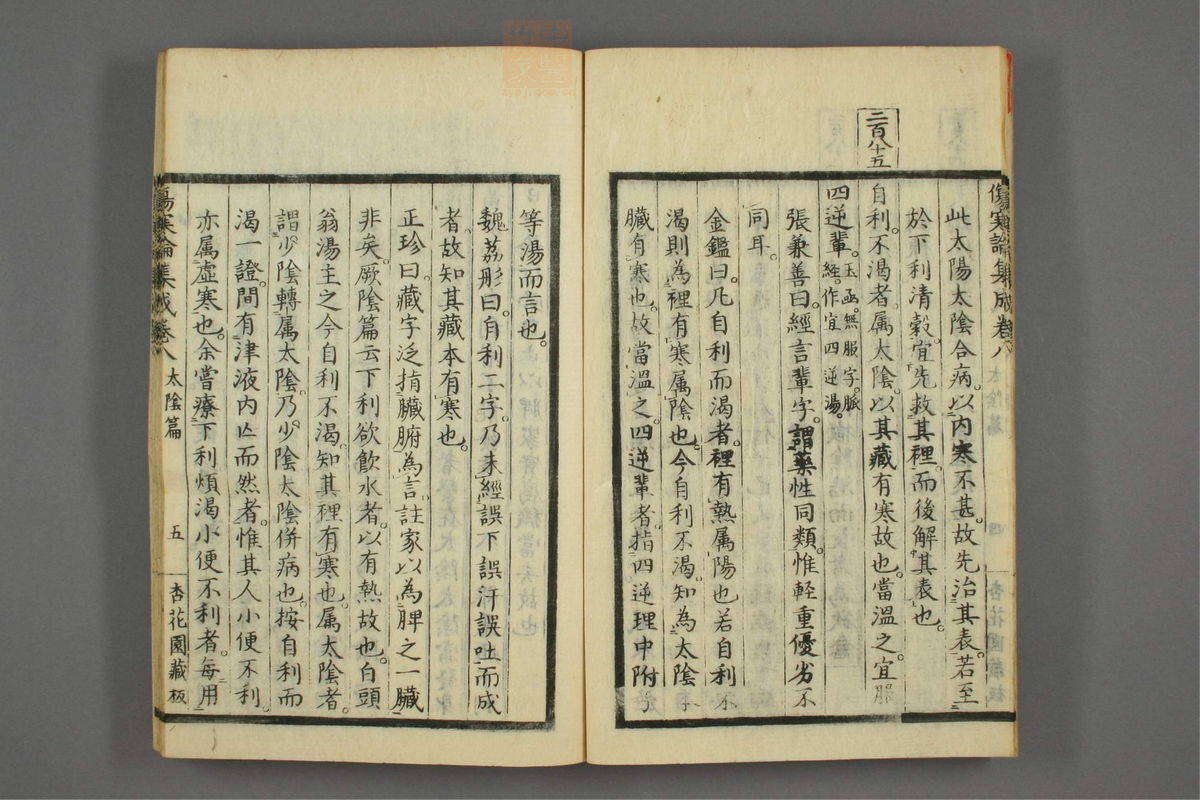 傷寒論集成卷八
此太陽太陰合病。以内寒不甚。故先治其表。若至
於下利清穀。宜先救其裡。而後解其表也。
二百八十五
自利。不渴者。属太陰。以其藏有寒故也。當溫之。宜服
四逆輩。玉函。無服字。脈
經。作宜四逆湯。
張兼善曰。經言輩字。謂藥性同類。惟輕重優劣不
同耳。
金鑑曰。凡自利而渴者。裡有熱属陽也。若自利不
渴則為裡有寒属陰也。今自利不渴。知為太陰
臟有寒也。故當溫之。四逆輩者。指四逆理中附子
等湯而言也。
魏荔彤曰。自利二字。乃未經誤下誤汗誤吐而成
者。故知其藏本有寒也。
正珍曰。藏字泛指臟腑為言。註家以為脾之一臟
非矣。厥陰篇云下利欲飲水者。以有熱故也。白頭
翁湯主之今自利不渴。知其裡有寒也。属太陰者。
謂少陰轉属太陰。乃少陰太陰併病也。按自利而
渴一證。間有津液内亡而然者。惟其人小便不利
亦属虛寒也。余嘗療下利煩渴小便不利者。每用
傷寒論集成卷八 太陰篇 五 杏花園藏板